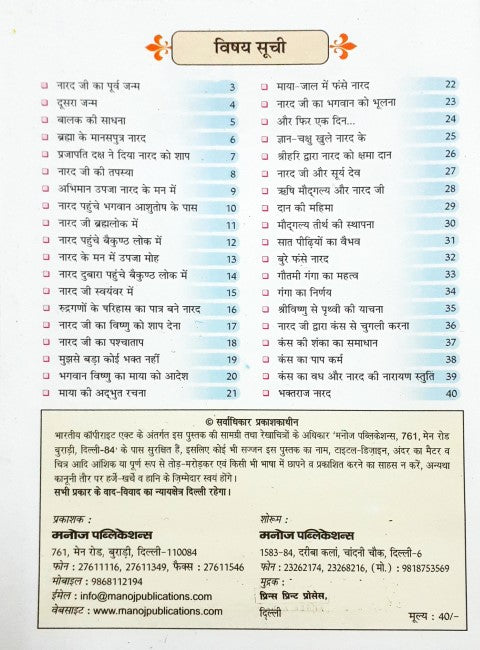 विषय सूची
नारद जी का पूर्व जन्म 3
दूसरा जन्म 4
बालक की साधना 5
ब्रह्मा के मानसपुत्र नारद 6
प्रजापति दक्ष ने दिया नारद को शाप 7
नारद जी की तपस्या 8
अभिमान उपजा नारद के मन में 9
नारद पहुंचे भगवान आशुतोष के पास 10
नारद जी ब्रह्मलोक में 11
नारद पहुंचे बैकुण्ठ लोक में 12
नारद के मन में उपजा मोह 13
नारद दुबारा पहुंचे बैकुण्ठ लोक में 14
नारद जी स्वयंवर में 15
रुद्रगणों के परिहास का पात्र बने नारद 16
नारद जी का विष्णु को शाप देना 17
नारद जी का पश्चाताप 18
मुझसे बड़ा कोई भक्त नहीं 19
भगवान विष्णु का माया को आदेश 20
माया की अद्भुत रचना 21
माया-जाल में फंसे नारद 22
नारद जी का भगवान को भूलना 23
और फिर एक दिन... 24
ज्ञान-चक्षु खुले नारद के 25
श्रीहरि द्वारा नारद को क्षमा दान 26
नारद जी और सूर्य देव 27
ऋषि मौद्गल्य और नारद जी 28
दान की महिमा 29
मौद्गल्य तीर्थ की स्थापना 30
सात पीढ़ियों का वैभव 31
बुरे फंसे नारद 32
गौतमी गंगा का महत्व 33
गंगा का निर्णय 34
श्रीविष्णु से पृथ्वी की याचना 35
नारद जी द्वारा कंस से चुगली करना 36
कंस की शंका का समाधान 37
कंस का पाप कर्म 38
कंस का वध और नारद की नारायण स्तुति 39
भक्तराज नारद 40
© सर्वाधिकार प्रकाशकाधीन
भारतीय कॉपीराइट एक्ट के अंतर्गत इस पुस्तक की सामग्री तथा रेखाचित्रों के अधिकार 'मनोज पब्लिकेशन्स, 761, मेन रोड
बुराड़ी, दिल्ली-84' के पास सुरक्षित हैं, इसलिए कोई भी सज्जन इस पुस्तक का नाम, टाइटल-डिजाइन, अंदर का मैटर व
चित्र आदि आंशिक या पूर्ण रूप से तोड़-मरोड़कर एवं किसी भी भाषा में छापने व प्रकाशित करने का साहस न करें, अन्यथा
कानूनी तौर पर हर्जे-खर्चे व हानि के ज़िम्मेदार स्वयं होंगे।
सभी प्रकार के वाद-विवाद का न्यायक्षेत्र दिल्ली रहेगा।
प्रकाशक :
मनोज पब्लिकेशन्स
761, मेन रोड, बुराड़ी, दिल्ली-110084
फोन : 27611116, 27611349, फैक्स : 27611546
मोबाइल : 9868112194
ईमेल : info@manojpublications.com
वेबसाइट : www.manojpublications.com
शोरूम :
मनोज पब्लिकेशन्स
1583-84, दरीबा कलां, चांदनी चौक, दिल्ली-6
फोन : 23262174, 23268216, (मो.) : 9818753569
मुद्रक :
प्रिन्स प्रिन्ट प्रोसेस,
दिल्ली
मूल्य : 40/-